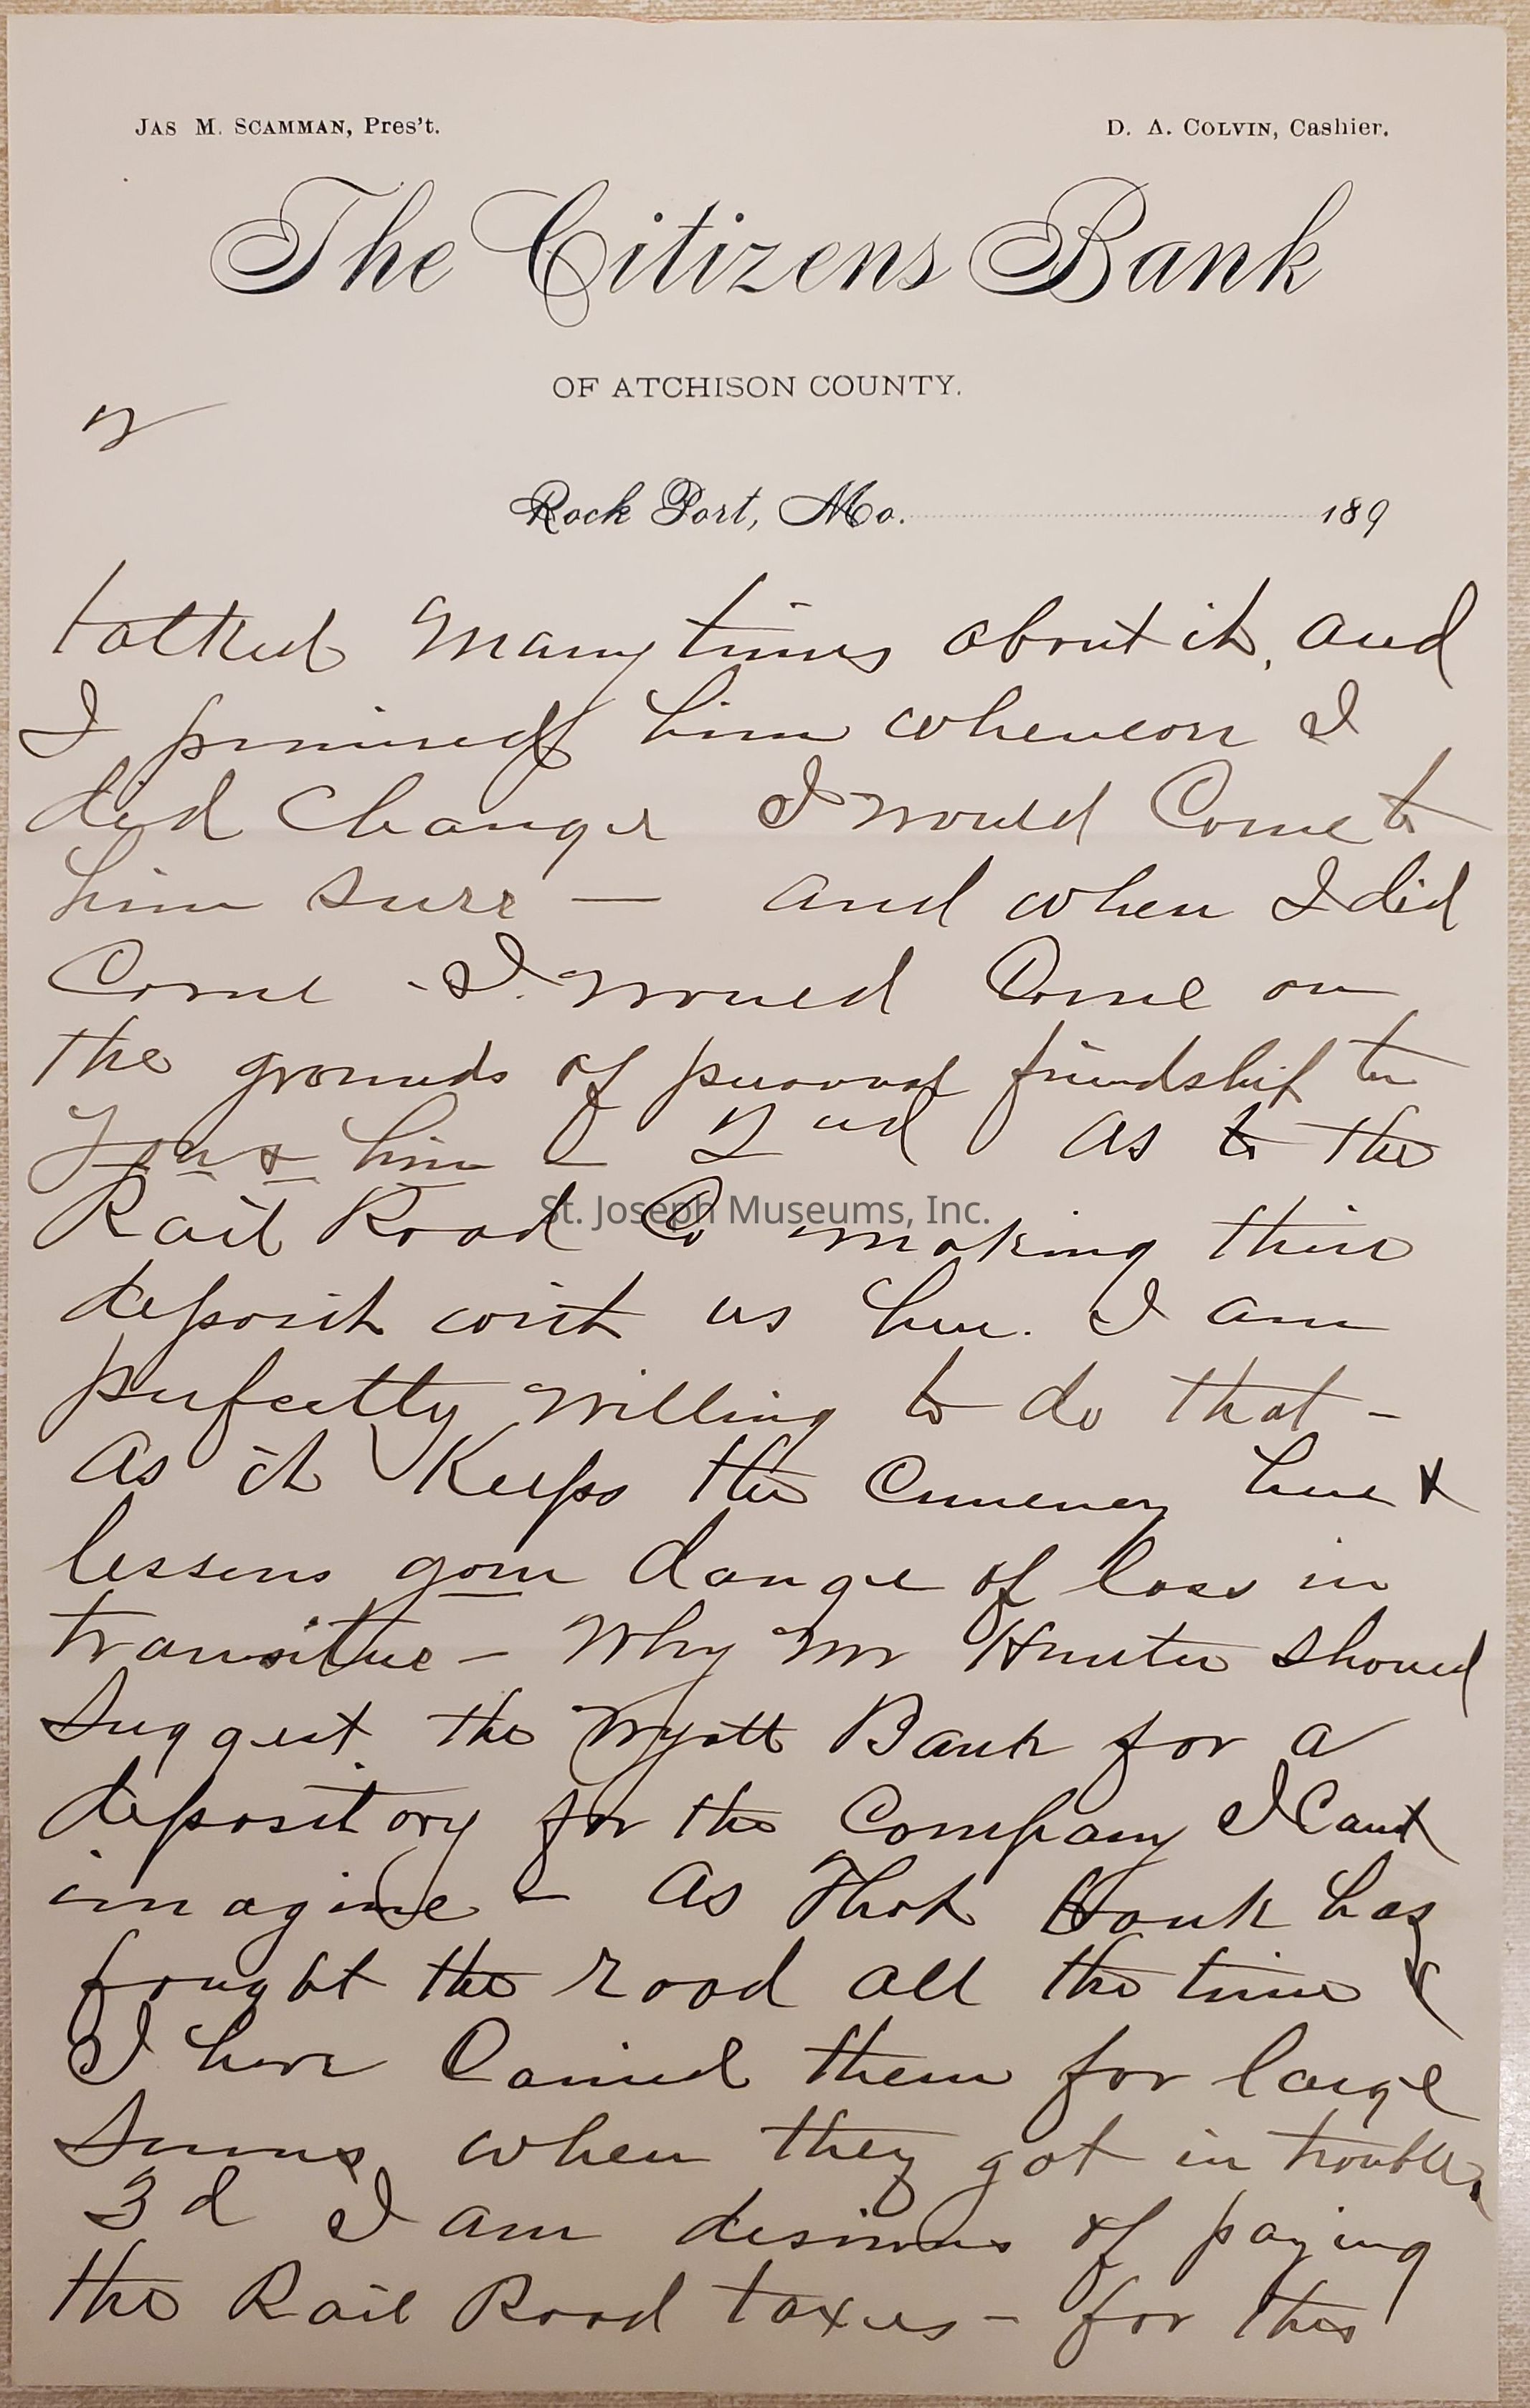 Jas M. Scamman, Pres't. D. A. Colvin, Cashier.
The Citizens Bank
OF ATCHISON COUNTY.
2
Rock Port, Mo. 189
talked many times about it, and
I promised him whenever I
did change I would Come to
him sure — and when I did
Come - I would Come on
the grounds of personal friendship to
you & him — 2nd As to the
Rail Road Co making their
deposit with us here. I am
perfectly willing to do that -
As it Keeps the Currency here &
lessens your danger of loss in
transitue - Why Mr Hunter should
suggest the Wyatt Bank for a
depository for the Company I Cant
imagine - As That Bank has
fought the road all the time &
I have Carried them for large
Sums when they got in trouble.
3d I am desirous of paying
the Rail Road taxes - for this
St. Joseph Museums, Inc.